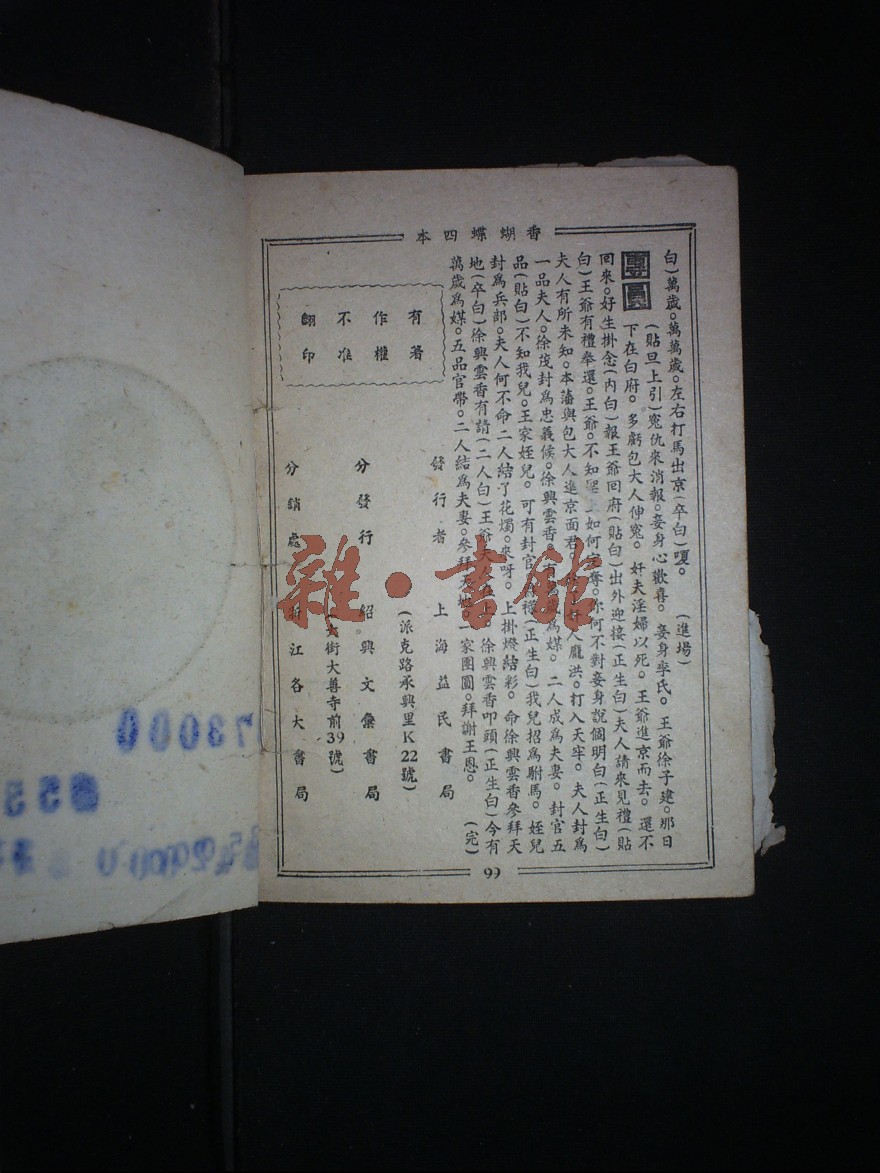 香蝴蝶四本
白)萬歲。萬萬歲。左右打馬出京(卒白)嗄。 (進場)
團圓
(貼旦上引)寃仇來消報。妾身心歡喜。 妾身李氏。 王爺徐子建。那日
下在白府。 多虧包大人伸寃。 奸夫淫婦以死。 王爺進京而去。 還不
回來。好生掛念(內白)報王爺回府(貼白)出外迎接(正生白)夫人請來見禮(貼
白)王爺有禮奉還。王爺。不知 如何 奪。你何不對妾身說個明白(正生白)
夫人有所未知。本藩與包大人進京面君。 人龐洪。打入天牢。 夫人封爲
一品夫人。徐茂封爲忠義候。徐興雲香。 爲媒。 二人成爲夫妻。 封官五
品(貼白)不知我兒。王家姪兒。可有封官 (正生白)我兒招爲駙馬。姪兒
封爲兵部。夫人何不命二人結了花燭。來呀。 上掛燈結彩。 命徐興雲香參拜天
地(卒白)徐興雲香有請(二人白)王爺 徐興雲香叩頭(正生白)今有
萬歲爲媒。五品官帶。二人結爲夫妻。參拜 一家團圓。拜謝王恩。 (完)
有著
作權
不准
翻印
發行者 上海益民書局
(派克路承興里K22號)
分發行 紹興文彙書局
(大街大善寺前39號)
分銷處 浙江各大書局
99
雜·書館
73000